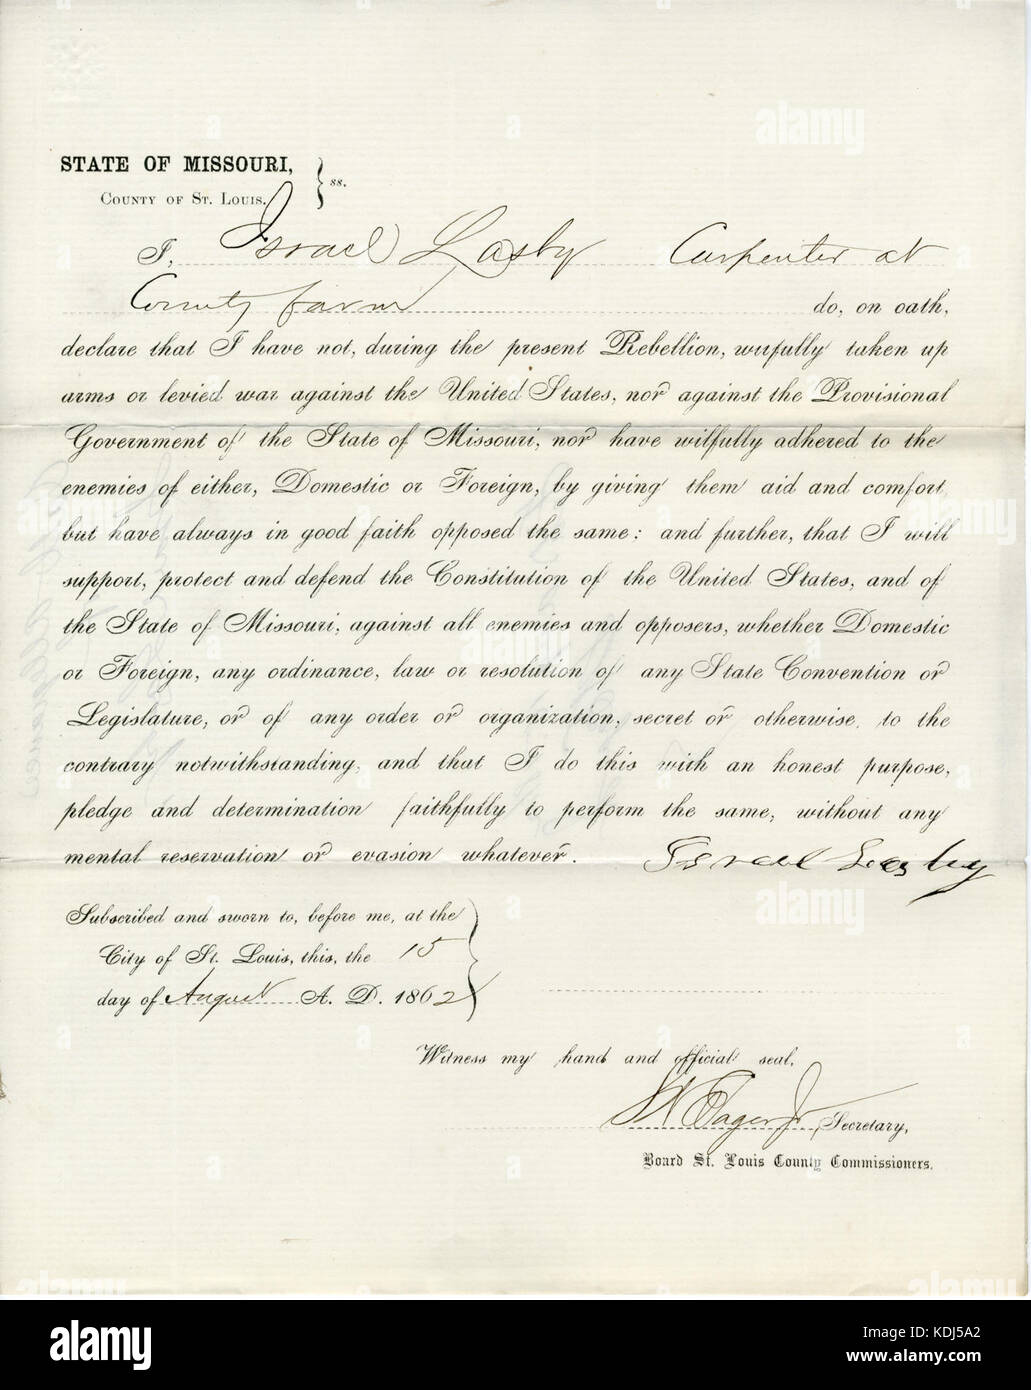 STATE OF MISSOURI,
COUNTY OF ST. LOUIS. } ss.
I, Israel Lasby Carpenter at
County farm do, on oath,
declare that I have not, during the present Rebellion, wilfully taken up
arms or levied war against the United States, nor against the Provisional
Government of the State of Missouri, nor have wilfully adhered to the
enemies of either, Domestic or Foreign, by giving them aid and comfort,
but have always in good faith opposed the same: and further, that I will
support, protect and defend the Constitution of the United States, and of
the State of Missouri, against all enemies and opposers, whether Domestic
or Foreign, any ordinance, law or resolution of any State Convention or
Legislature, or of any order or organization, secret or otherwise, to the
contrary notwithstanding, and that I do this with an honest purpose,
pledge and determination faithfully to perform the same, without any
mental reservation or evasion whatever. Israel Lasby
Subscribed and sworn to, before me, at the
City of St. Louis, this, the 15
day of August A. D. 1862
Witness my hand and official seal,
Eager Jr Secretary,
Board St. Louis County Commissioners.
alamy
Image ID: KDJ5A2
www.alamy.com